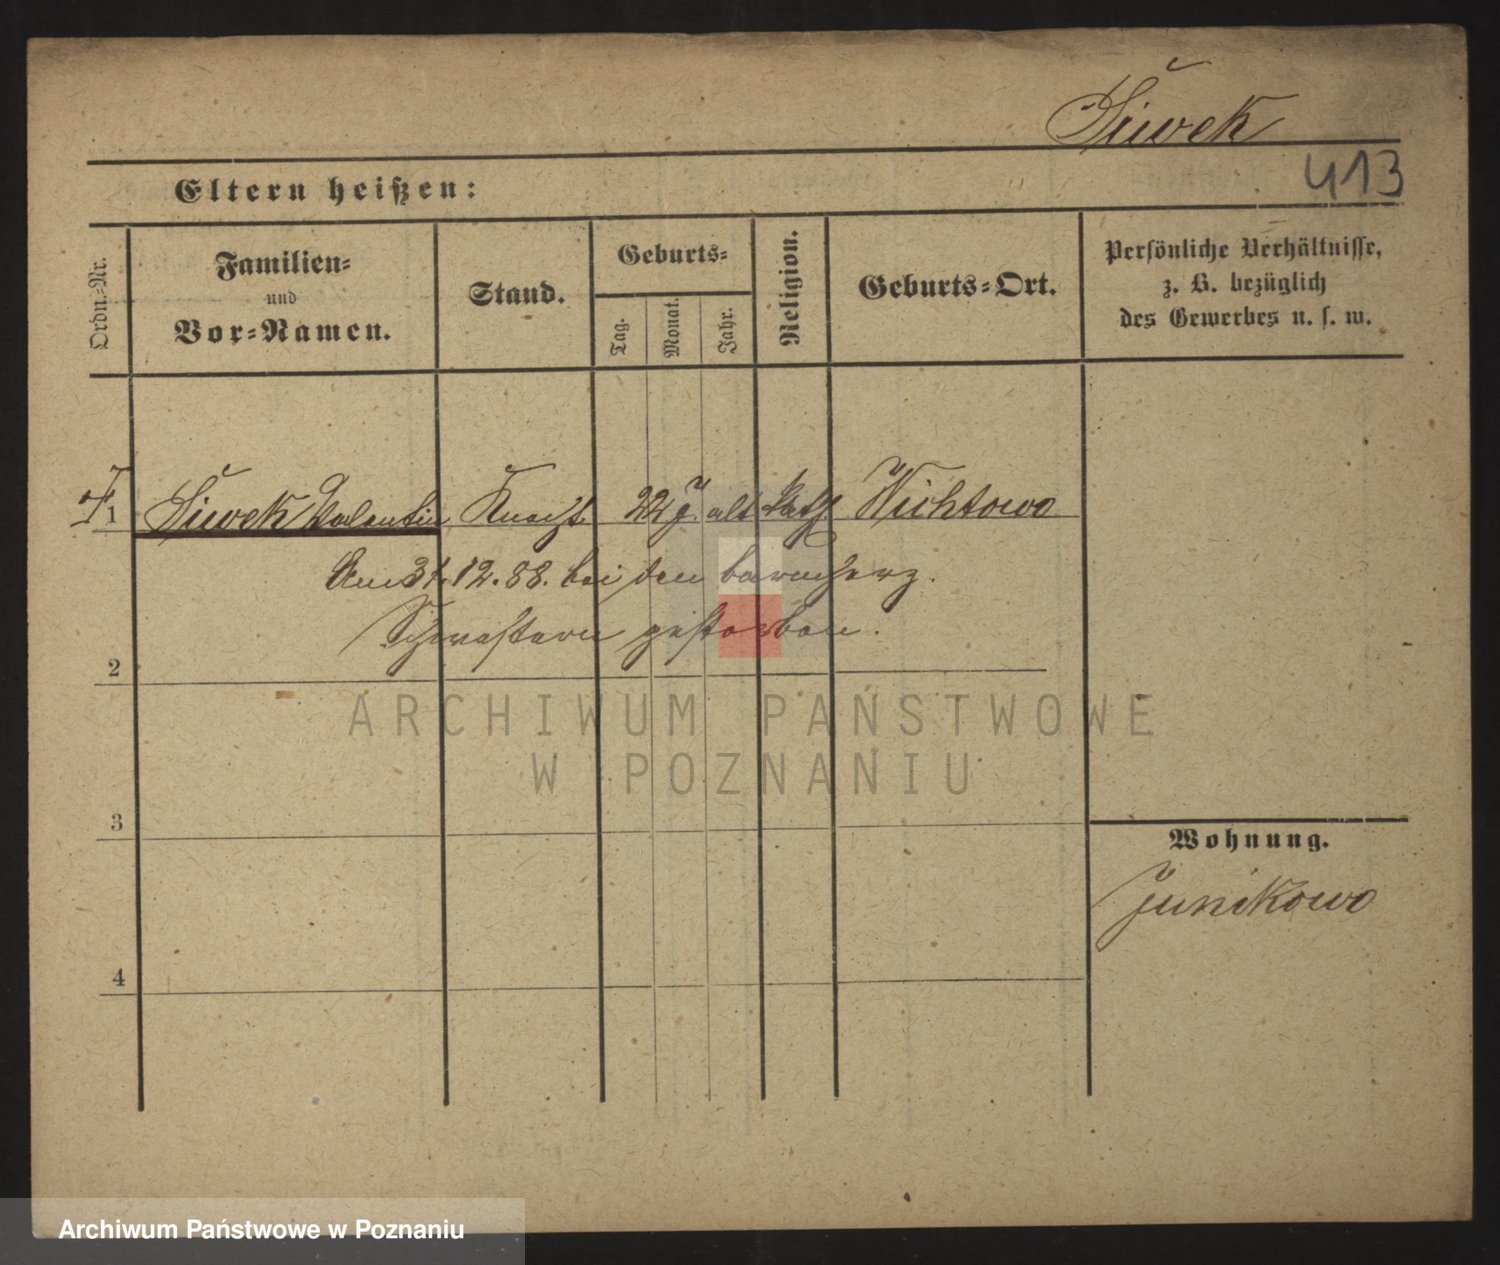 Siwek
413
Eltern heißen:
Ordn.-Nr.
Familien-
und
Vor-Namen.
Stand.
Geburts-
Tag.
Monat.
Jahr.
Religion.
Geburts-Ort.
Persönliche Verhältnisse,
z. B. bezüglich
des Gewerbes u. s. w.
1 Siwek Valentin Knecht 22 J. alt kath.
Am 31.12.88. bei den barmherz.
Schwestern gestorben.
2
3
4
Wohnung.
Junikowo
ARCHIWUM PAŃSTWOWE
W POZNANIU
Archiwum Państwowe w Poznaniu